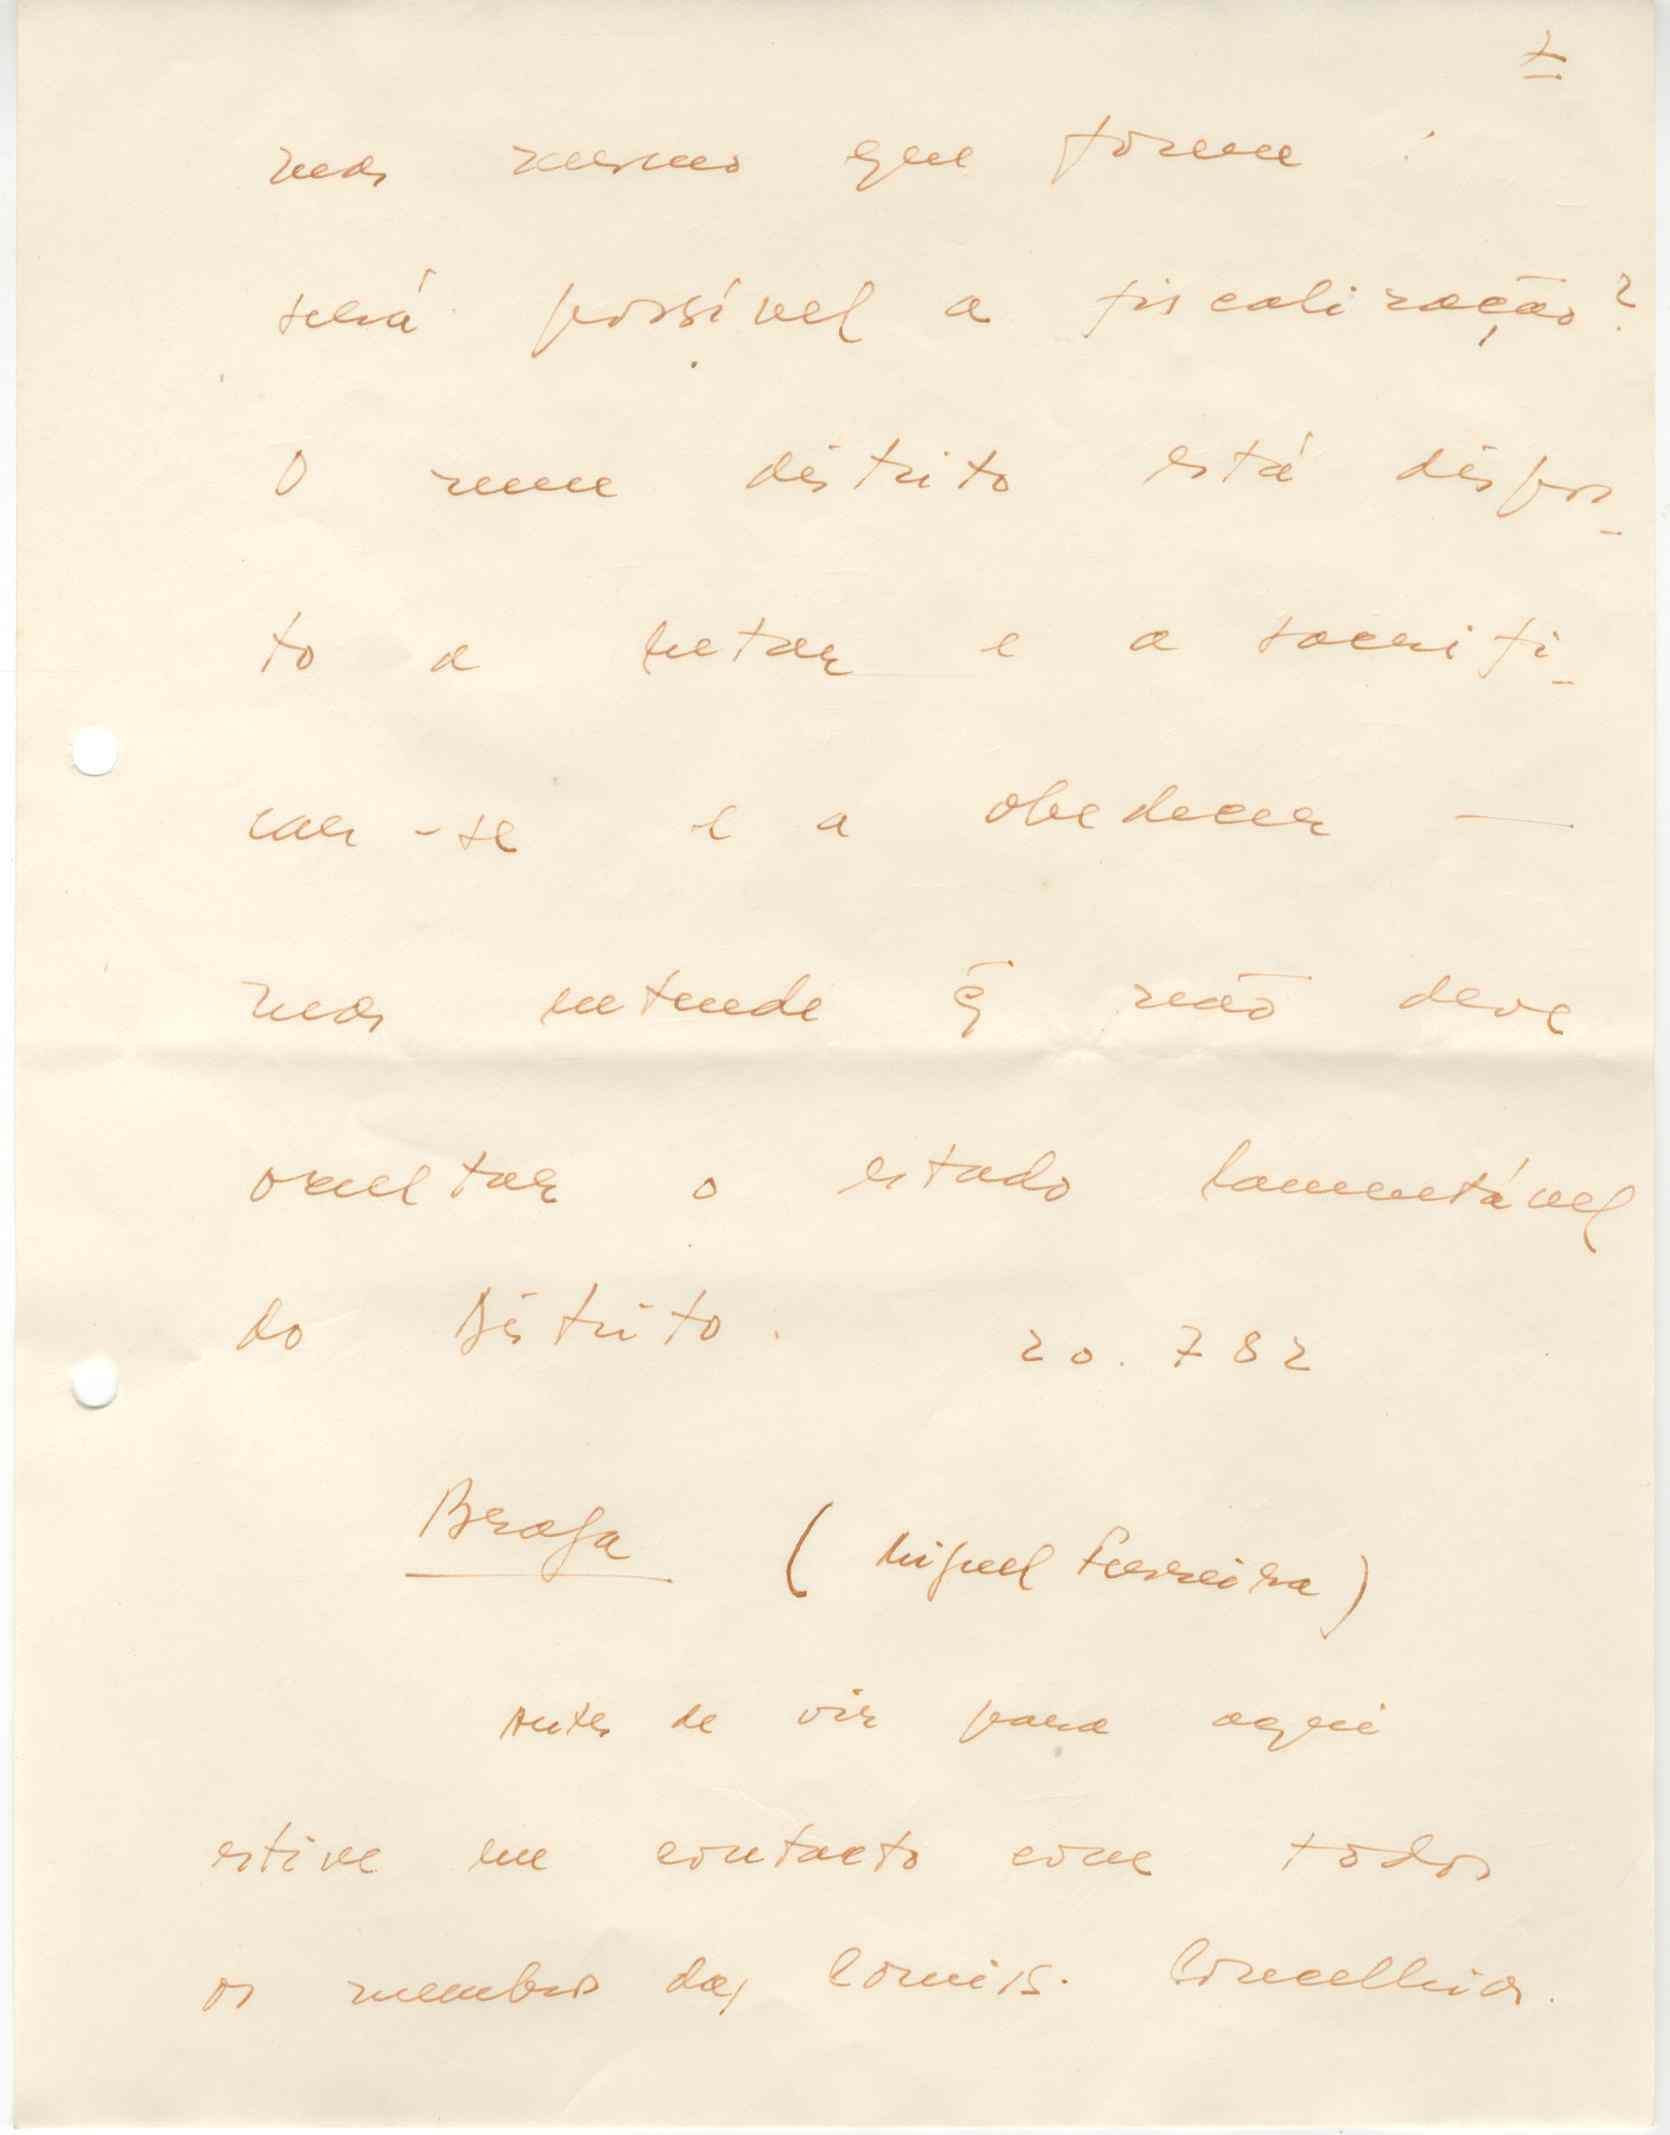 7
mas mesmo que forem :
será possível a fiscalização?
O meu distrito está dispos-
to a lutar e a sacrifi-
car-se e a obedecer —
mas entende q̃ não deve
ocultar o estado lamentável
do Distrito. 20.782
Braga (Miguel Ferreira)
Antes de vir para aqui
estive em contacto com todos
os membros das Comis. Concelhias.